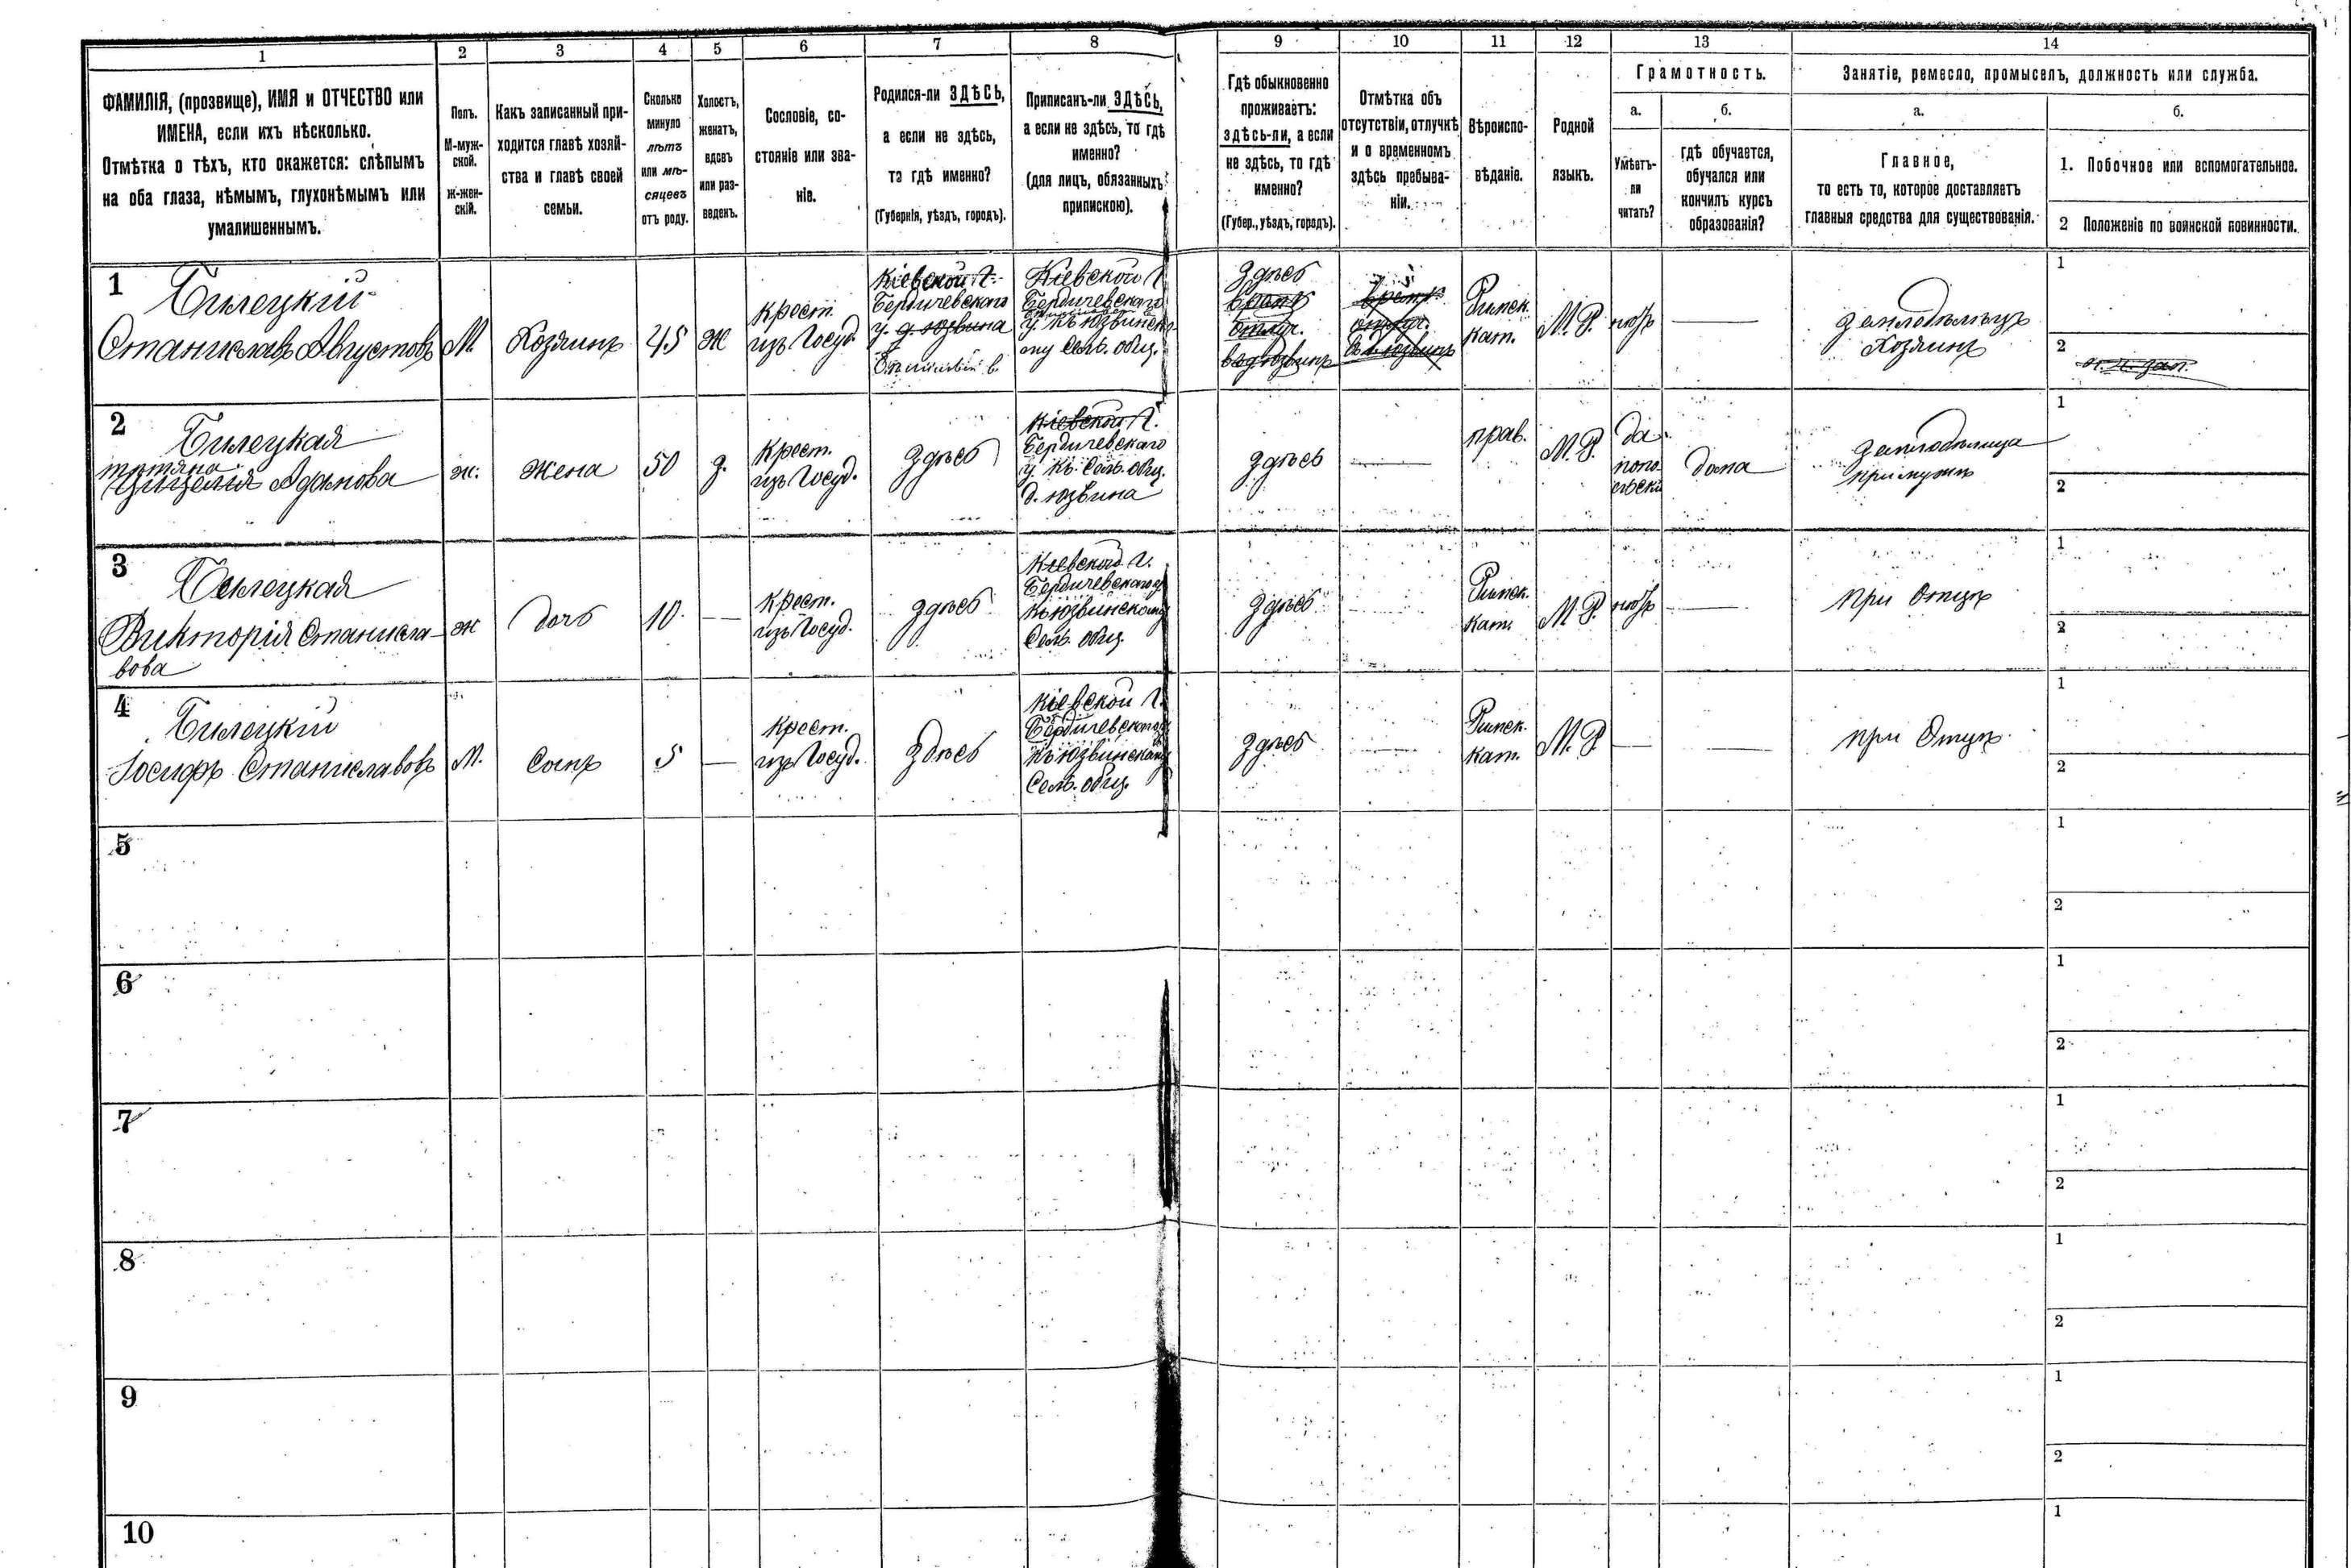 1 2 3 4 5 6 7 8 9 10 11 12 13 14
ФАМИЛІЯ, (прозвище), ИМЯ и ОТЧЕСТВО или
ИМЕНА, если ихъ нѣсколько.
Отмѣтка о тѣхъ, кто окажется: слѣпымъ
на оба глаза, нѣмымъ, глухонѣмымъ или
умалишеннымъ.
Полъ.
М-муж-
ской.
ж-жен-
скій.
Какъ записанный при-
ходится главѣ хозяй-
ства и главѣ своей
семьи.
Сколько
минуло
лѣтъ
или мѣ-
сяцевъ
отъ роду.
Холостъ,
женатъ,
вдовъ
или раз-
веденъ.
Сословіе, со-
стояніе или зва-
ніе.
Родился-ли ЗДѢСЬ,
а если не здѣсь,
то гдѣ именно?
(Губернія, уѣздъ, городъ).
Приписанъ-ли ЗДѢСЬ,
а если не здѣсь, то гдѣ
именно?
(для лицъ, обязанныхъ
припискою).
Гдѣ обыкновенно
проживаетъ:
здѣсь-ли, а если
не здѣсь, то гдѣ
именно?
(Губер., уѣздъ, городъ).
Отмѣтка объ
отсутствіи, отлучкѣ
и о временномъ
здѣсь пребыва-
ніи.
Вѣроиспо-
вѣданіе.
Родной
языкъ.
Грамотность.
а.
Умѣетъ-
ли
читать?
б.
гдѣ обучается,
обучался или
кончилъ курсъ
образованія?
Занятіе, ремесло, промыселъ, должность или служба.
а.
Главное,
то есть то, которое доставляетъ
главныя средства для существованія.
б.
1. Побочное или вспомогательное.
2 Положеніе по воинской повинности.
1
Билецкій
Станиславъ Августовъ
М.
Хозяинъ
45
Ж
Крест.
изъ Госуд.
Кіевской Г.
Бердичевскаго
у. д. Юзвина
Кіевской Г
Бердичевскаго
у. къ Юзвинско-
му Сель. общ.
здѣсь
отлуч.
Римск.
кат.
М. Р.
нѣтъ
земледѣлецъ
Хозяинъ
1
2
2
Билецкая
татяна
Цицелія Адамова
ж.
жена
50
з.
Крест.
изъ Госуд.
здѣсь
Кіевской Г.
Бердичевскаго
у къ. Сель. общ.
д. Юзвина
здѣсь
прав.
М. Р.
да
дома
земледѣлица
при мужѣ
1
2
3
Билецкая
Викторія Станисла-
вова
ж
дочь
10
Крест.
изъ Госуд.
здѣсь
Кіевской Г.
Бердичевскаго у
къ Юзвинскому
Сель. общ.
здѣсь
Римск.
кат.
М. Р.
нѣтъ
при Отцѣ
1
2
4
Билецкій
Іосифъ Станиславовъ
М.
Сынъ
5
Крест.
изъ Госуд.
здѣсь
Кіевской Г.
Бердичевскаго у
къ Юзвинскому
Сель. общ.
здѣсь
Римск.
кат.
М. Р.
при Отцѣ
1
2
5
1
2
6
1
2
7
1
2
8
1
2
9
1
2
10
1